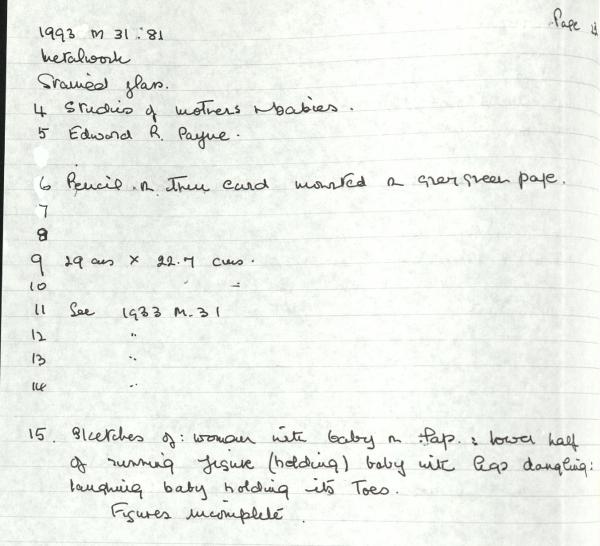 Page 4
1993 M 31 : 81
Metalwork
Stained glass.
4 Studies of mothers + babies.
5 Edward R. Payne.
6 Pencil on thin card mounted on grey green page.
7
8
9 29 cms × 22.7 cms.
10 " "
11 See 1933 M.31
12 "
13 "
14 "
15. Sketches of: woman with baby on lap: lower half
of running figure (holding) baby with legs dangling:
laughing baby holding its Toes.
Figures incomplete.